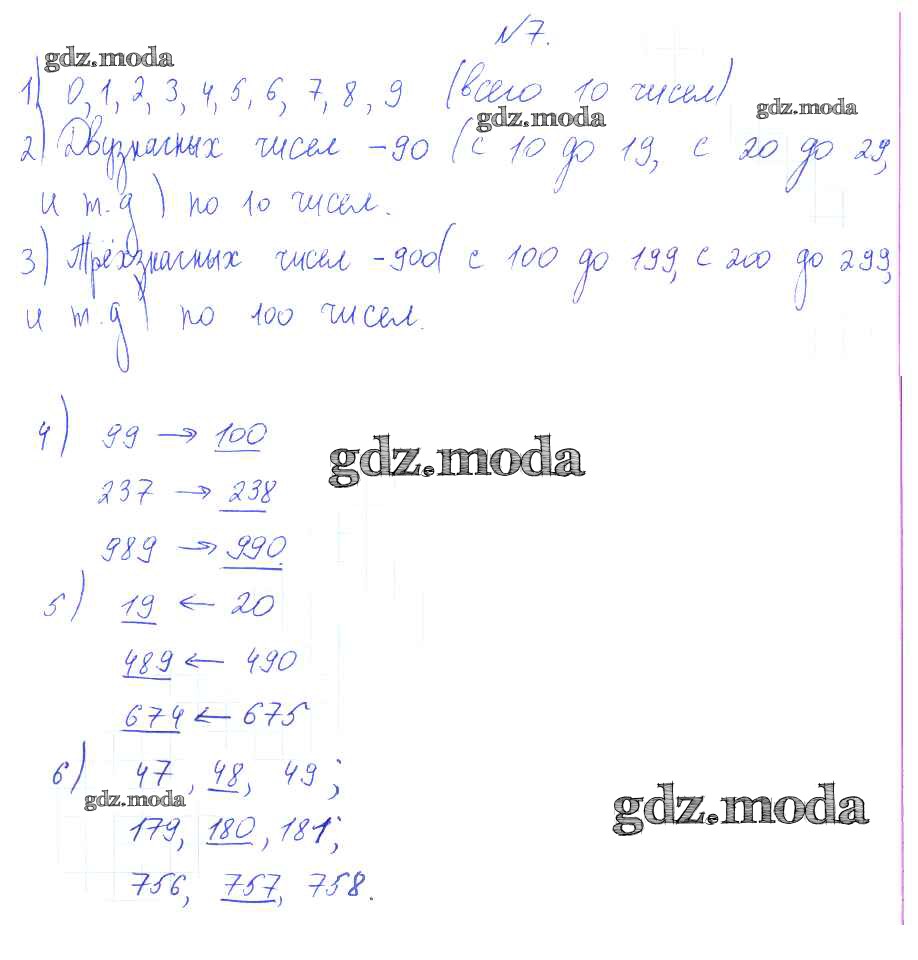 №7.
gdz.moda
1) 0, 1, 2, 3, 4, 5, 6, 7, 8, 9 (всего 10 чисел)
gdz.moda
gdz.moda
2) Двузначных чисел - 90 (с 10 до 19, с 20 до 29,
и т.д) по 10 чисел.
3) Трёхзначных чисел - 900 (с 100 до 199, с 200 до 299,
и т.д) по 100 чисел.
4) 99 → 100
gdz.moda
237 → 238
989 → 990.
5) 19 ← 20
489 ← 490
674 ← 675
6) 47, 48, 49;
gdz.moda
gdz.moda
179, 180, 181;
756, 757, 758.